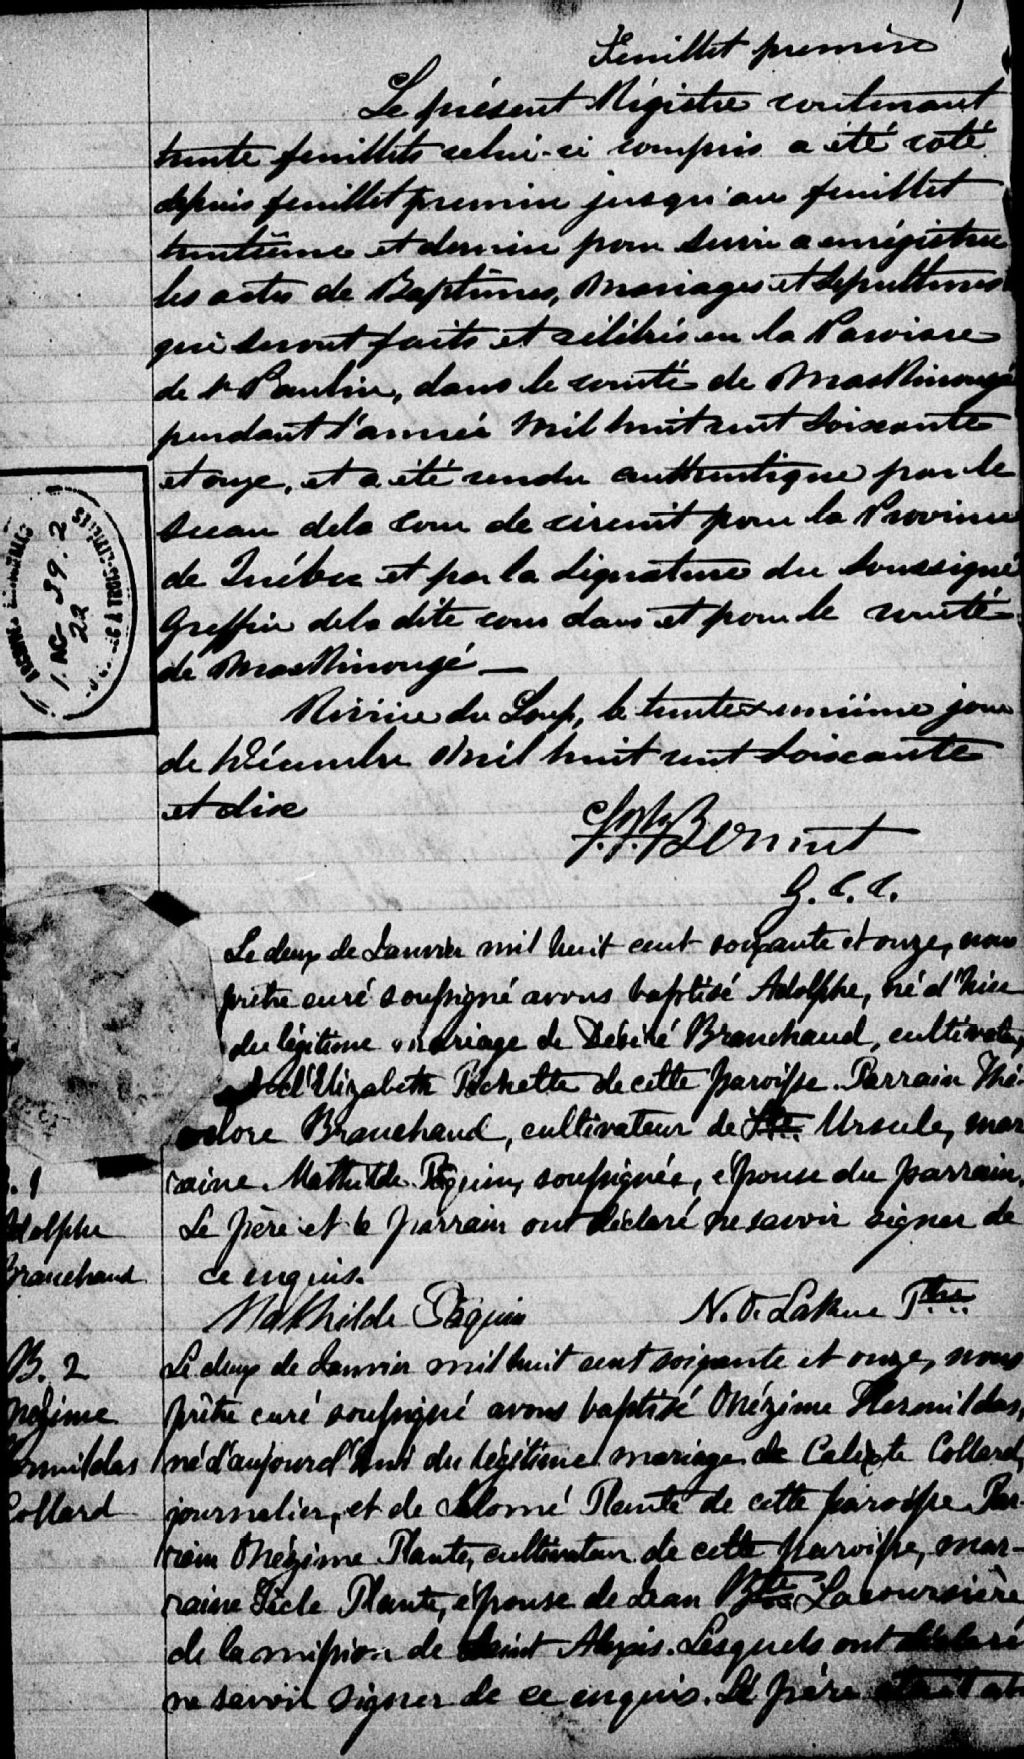 Feuillet premier
Le présent Régistre contenant
trente feuillets celui-ci compris a été coté
depuis feuillet premier jusqu'au feuillet
trentième et dernier pour servir a enrégistrer
les actes de Baptêmes, Mariages et Sépultures
qui seront faits et célébrés en la Paroisse
de St Paulin, dans le comté de Maskinongé
pendant l'année Mil huit cent soixante
et onze, et a été rendu authentique par le
sceau de la Cour de circuit pour la Province
de Québec et par la signature du soussigné
Greffier de la dite cour dans et pour le comté
de Maskinongé —
Rivière du Loup, le trente et unième jour
de Décembre Mil huit cent soixante
et dix
G. C. C.
1. AG 39. 2
22
Le deux de Janvier mil huit cent soixante et onze, nous
prêtre curé soussigné avons baptisé Adolphe, né d'hier
du légitime mariage de Désiré Branchaud, cultivateur,
et d'Elizabeth Pichette de cette paroisse. Parrain Thé-
odore Branchaud, cultivateur de Ste. Ursule, mar
raine Mathilde Paquin, soussignée, épouse du parrain.
Le père et le parrain ont déclaré ne savoir signer de
ce enquis.
Mathilde Paquin N. O. LaRue Ptre
B. 1
Adolphe
Branchaud
B. 2
Onézime
Hermildas
Collard
Le deux de Janvier mil huit cent soixante et onze, nous
prêtre curé soussigné avons baptisé Onézime Hermildas,
né d'aujourd'hui du légitime mariage de Calixte Collard,
journalier, et de Salomé Plante de cette paroisse. Par-
rain Onézime Plante, cultivateur de cette paroisse, mar-
raine Tècle Plante, épouse de Jean Bte Lacoursière
de la mission de Saint Alexis. Lesquels ont déclaré
ne savoir signer de ce enquis. Le père était ab